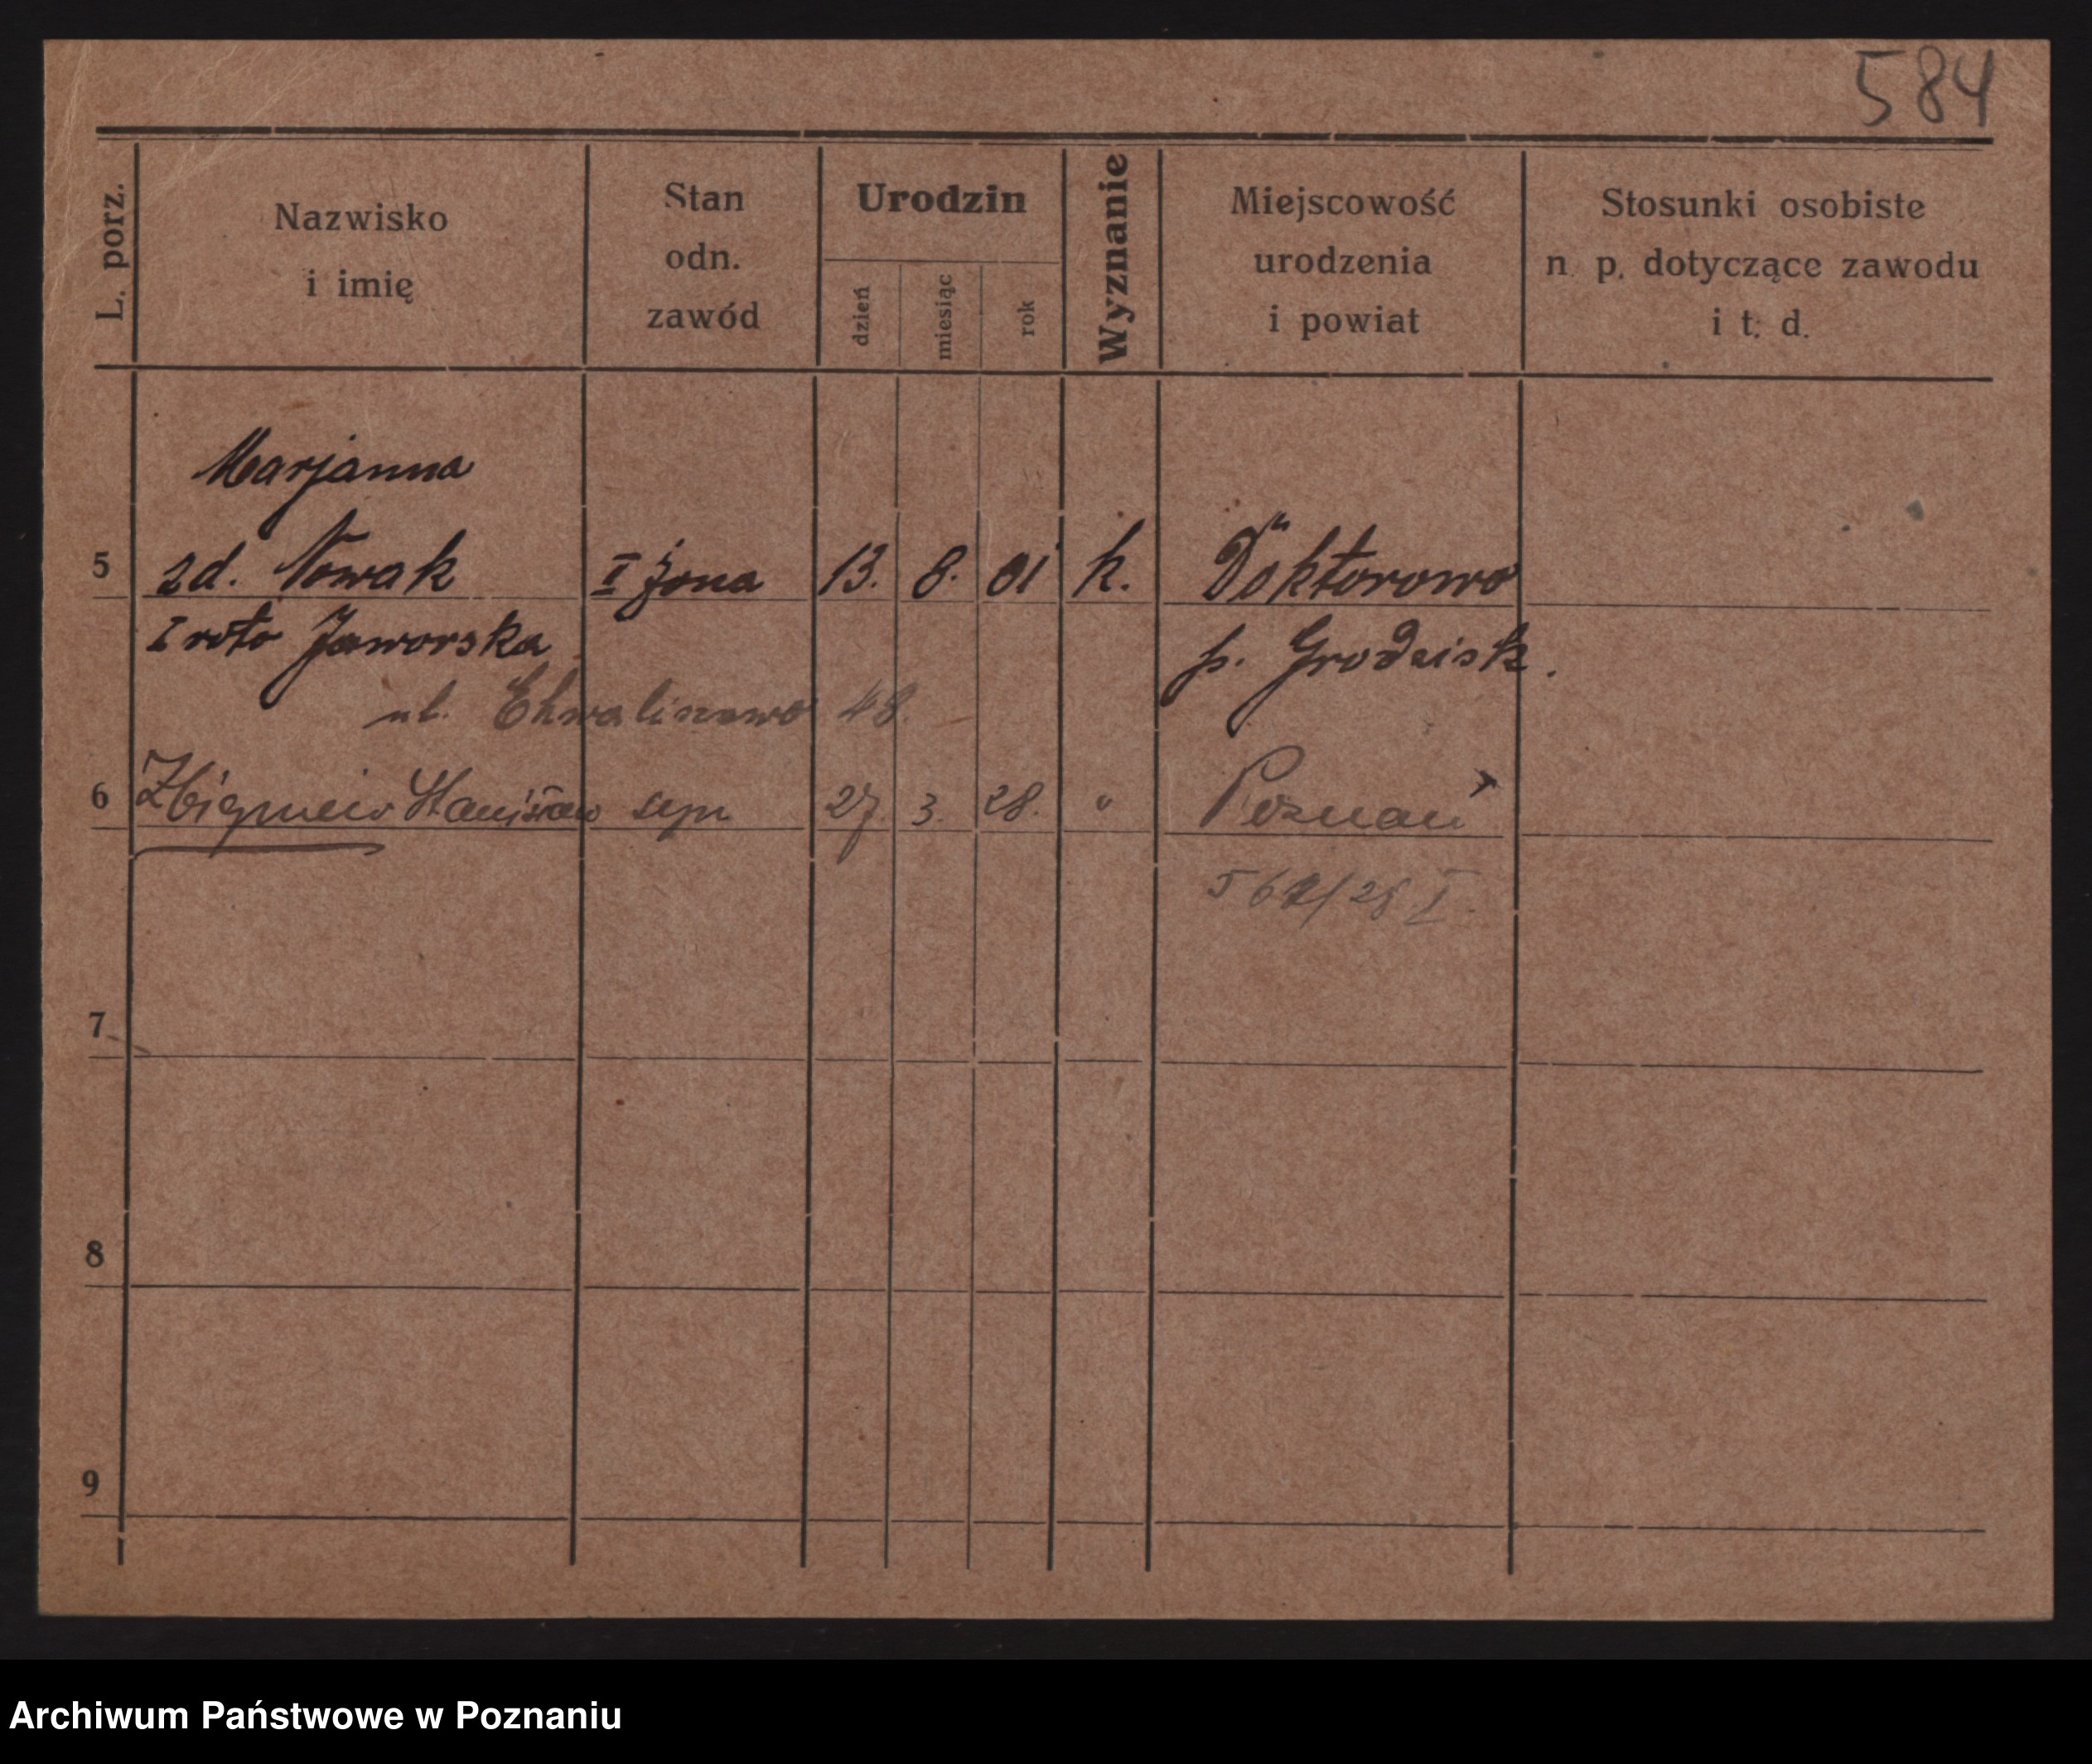 584
L. porz.
Nazwisko
i imię
Stan
odn.
zawód
Urodzin
dzień
miesiąc
rok
Wyznanie
Miejscowość
urodzenia
i powiat
Stosunki osobiste
n. p. dotyczące zawodu
i t. d.
Marjanna
5 zd. Nowak I żona 13. 8. 01 k. Doktorowo
I voto Jaworska p. Grodzisk.
ul. Chwaliszewo 48.
6 Zbigniew Stanisław syn 27. 3. 28. " Poznań
/28 I
7
8
9
Archiwum Państwowe w Poznaniu